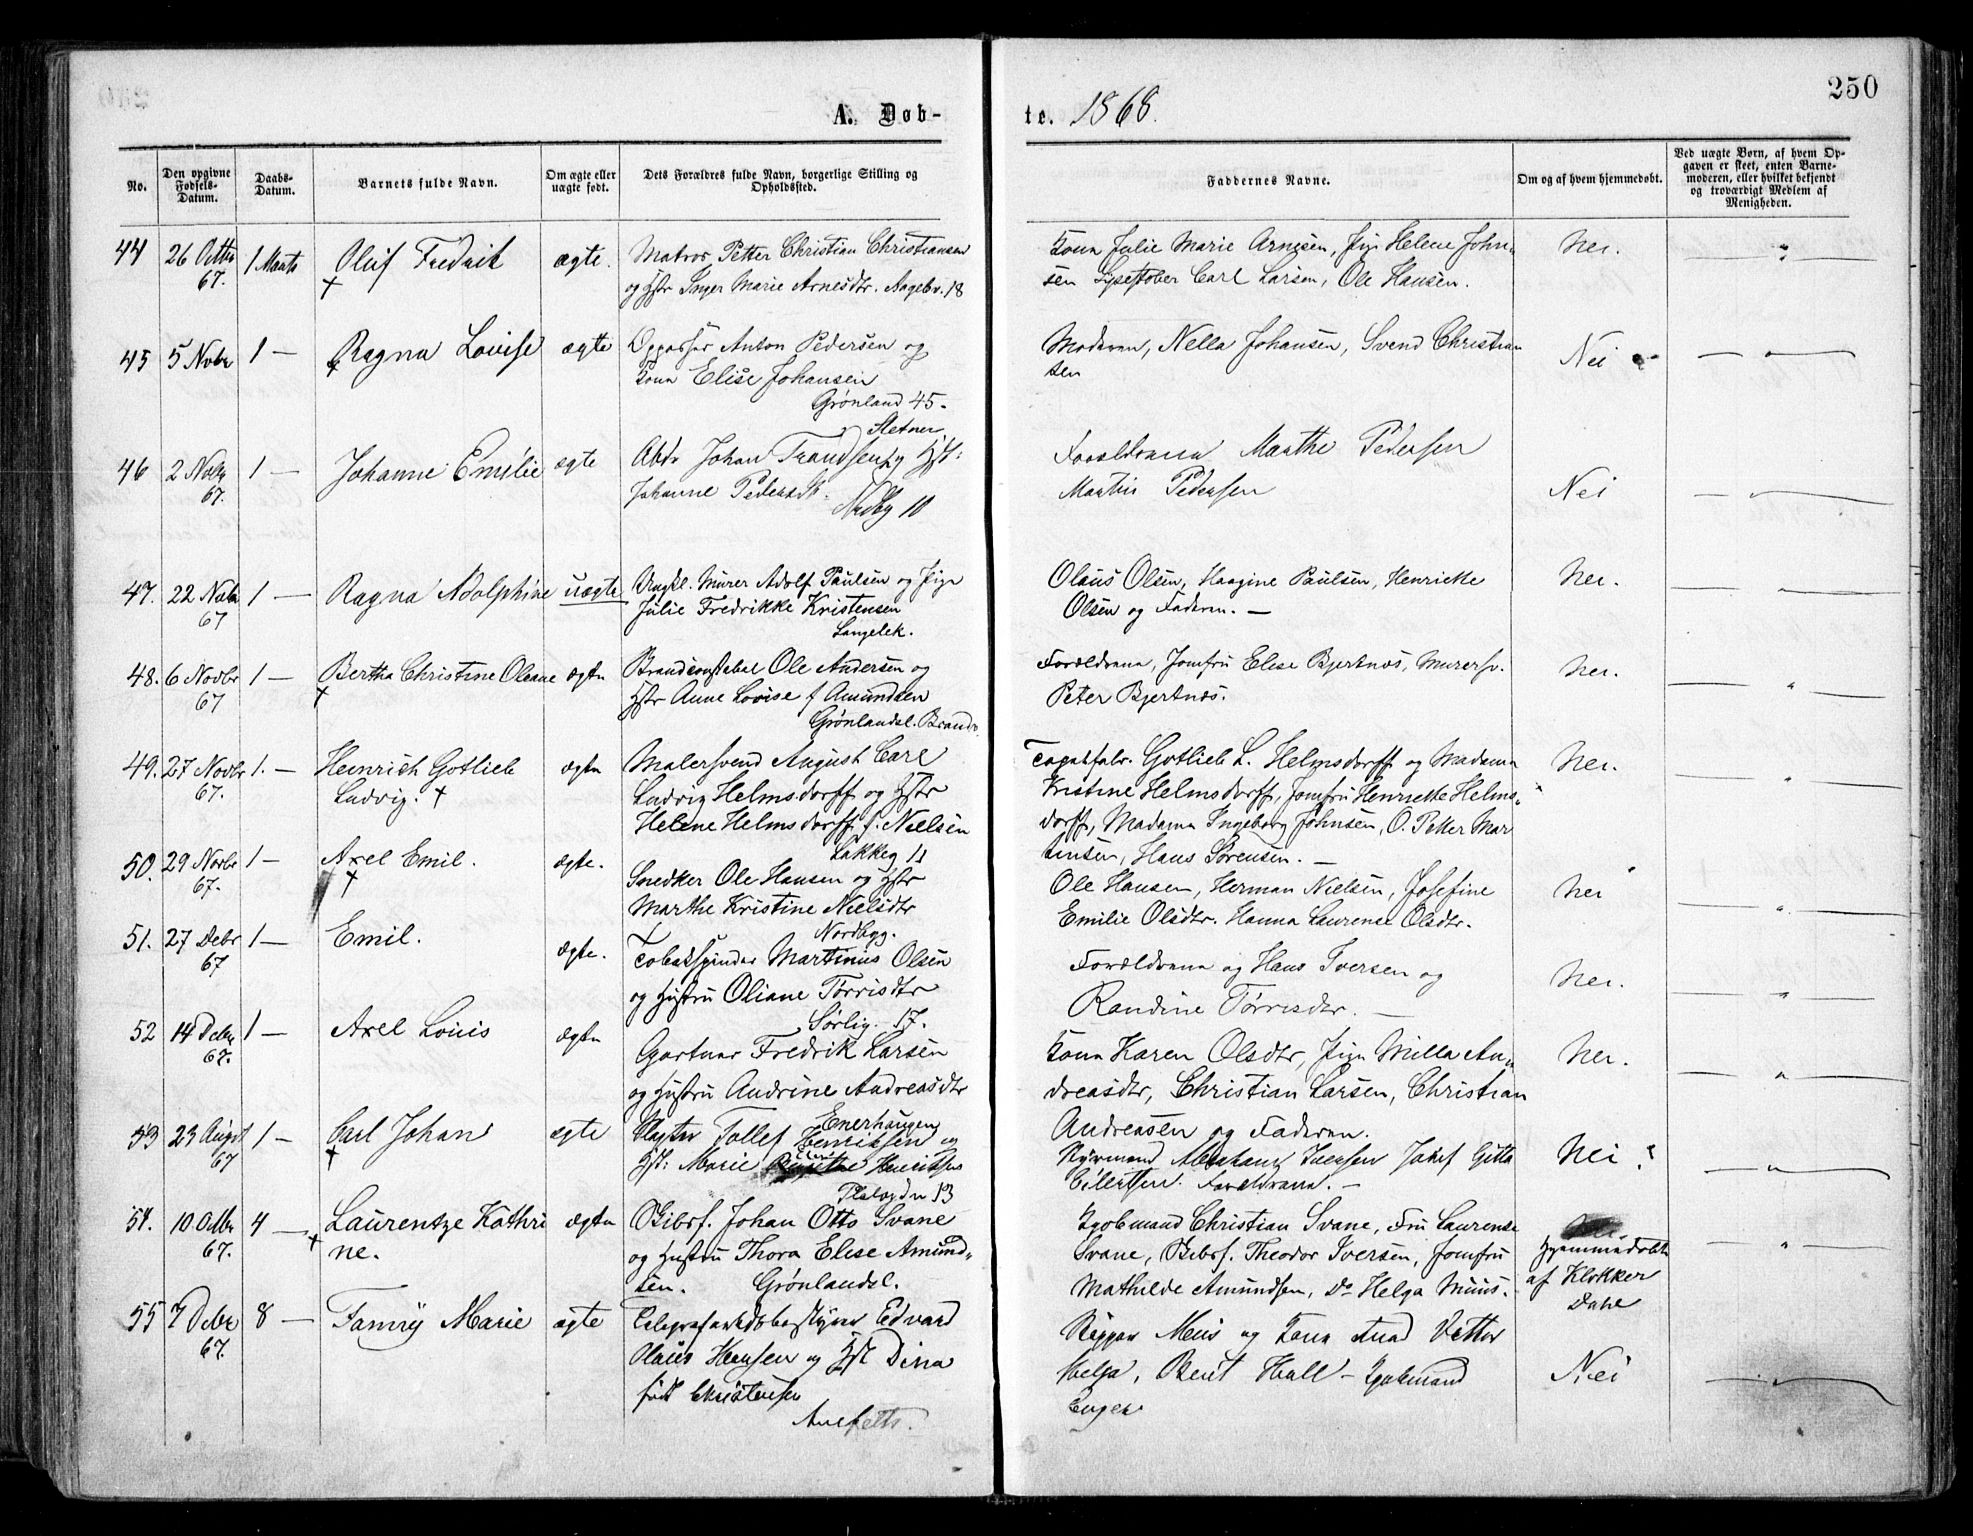 250
A. Døb-
te. 1868.
No.
Den opgivne Fødsels-Datum.
Daabs-Datum.
Barnets fulde Navn.
Om ægte eller uægte født.
Dets Forældres fulde Navn, borgerlige Stilling og Opholdssted.
Faddernes Navne.
Om og af hvem hjemmedøbt.
Ved uægte Børn, af hvem Opgaven er skeet, enten Barnemoderen, eller hvilket bekjendt og troværdigt Medlem af Menigheden.
44 26 Octbr 67. 1 Marts Oluf Fredrik ægte.
Matros Petter Christian Christiansen
og Hstr Inger Marie Arnesdtr. Aagebv. 18
Kona Julie Marie Arnesen, Pige Helene John-
sen Lysestøber Carl Larsen, Ole Hansen.
Nei.
45 5 Novbr 1 — Ragna Lovise ægte
Oppasser Anton Pedersen og
Kona Elise Johansen
Grønland 45.
Moderen, Nella Johansen, Svend Christian
sen
Nei
46 2 Novbr 67. 1 — Johanne Emilie ægte
Abdr Johan Frandsen og Hst:
Johanne Pedersdt.
10
Forældrene Marthe Pedersen
Martin Pedersen
Nei
47. 22 Novbr 67 1 — Ragna Adolphine uægte
Ungkl. Murer Adolf Paulsen og Pige
Julie Fredrikke Kristensen
Langelek.
Olaus Olsen, Haagine Paulsen, Henriette
Olsen og Faderen. —
Nei.
48. 6 Novbr 67 1 — Bertha Christine Oleane ægte
Brandconstabel Ole Andersen og
Hstr Anne Lovise f Amundsen
Grønlandsl. Brandv.
Forældrene, Jomfru Elise Bjertnæs, Murersv.
Peter Bjertnæs.
Nei.
49. 27 Novbr 67. 1. — Heinrich Gotlieb
Ludvig. ægte
Malersvend August Carl
Ludvig Helmsdorff og Hstr
Helene Helmsdorff f. Nielsen
Lakkeg 11
Gotlieb L. Helmsdorff og Madame
Kristine Helmsdorff, Jomfru Henriette Helms-
dorff, Madame Ingeborg Johnsen, O. Petter Mar
tinsen, Hans Sørensen. —
Nei.
50. 29 Novbr 67. 1 — Axel Emil. ægte.
Snedker Ole Hansen og Hstr
Marthe Kristine Nielsdtr
Nordbyg.
Ole Hansen, Herman Nielsen, Josefine
Emilie Olsdtr. Hanna Laurense Olsdtr.
Nei
51. 27 Debr 67 1 — Emil. ægte.
Tobakspinder Martinius Olsen
og Hustru Oliane Tørrisdtr
Sørlig. 17.
Forældrene og Hans Iversen og
Randine Tørrisdtr. —
Nei.
52 14 Debr 67. 1 — Axel Louis ægte
Gartner Fredrik Larsen
og Hustru Andrine Andreasdtr
Enerhaugen
Kona Karen Olsdtr, Pige Milla An-
dreasdtr, Christian Larsen, Christian
Andreasen og Faderen.
Nei.
53 23 Augst 67 1 — Carl Johan ægte
Slagter Tollef Henriksen og
Hst: Marie Henriksen
13
Abraham Iversen Josef Gitta
Eilertsen. Forældrene. —
Nei
54. 10 Octbr 67. 4 — Laurentze Kathri
ne. ægte
Johan Otto Svane
og Hustru Thora Elise Amund-
sen. Grønlandsl.
Kjøbmand Christian Svane, Fru Laurense
Svane, Theodor Iversen, Jomfru
Mathilde Amundsen, Do Helga Muus.
Hjemmedøbt
af Klokker
Dahl
55 7 Debr 67. 8 — Fanny Marie ægte
Edvard
Olaus Hansen og Hst Dina
født Christensen
Skipper Meis og Kone
Helga, Berit Hall — Kjøbmand
Enger
Nei